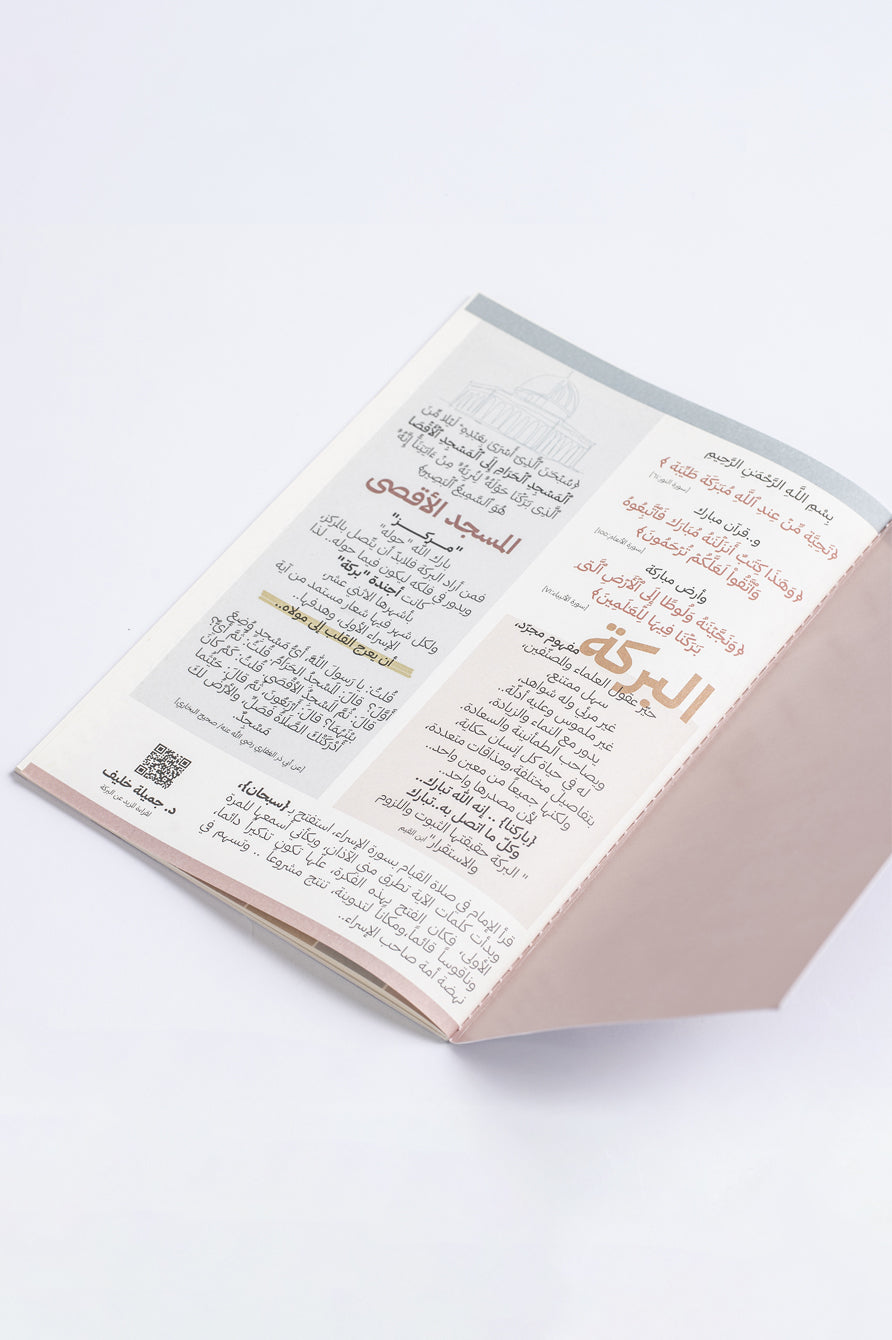 بِسْمِ اللَّهِ الرَّحْمَنِ الرَّحِيمِ
﴿تَحِيَّةً مِّنْ عِندِ ٱللَّهِ مُبَٰرَكَةً طَيِّبَةً ﴾
[سورة النور:٦١]
و..قرآن مبارك
﴿وَهَٰذَا كِتَٰبٌ أَنزَلْنَٰهُ مُبَارَكٌ فَٱتَّبِعُوهُ
وَٱتَّقُوا۟ لَعَلَّكُمْ تُرْحَمُونَ﴾
[سورة الأنعام:]
وأرض مباركة
﴿وَنَجَّيْنَٰهُ وَلُوطًا إِلَى ٱلْأَرْضِ ٱلَّتِى
بَٰرَكْنَا فِيهَا لِلْعَٰلَمِينَ﴾
[سورة الأنبياء:٧١]
البركة
مفهوم مجرّد،
حيّر عقول العلماء والصنّفين،
سهل ممتنع
غير مرئي وله شواهد،
غير ملموس وعليه أدلة..
يدور مع النماء والزيادة،
ويصاحب الطمأنينة والسعادة.
له في حياة كل إنسان حكاية،
بتفاصيل مختلفة،ومذاقات متعددة،
ولكنها جميعاً من معين واحد..
لأن مصدرها واحد..
{باركنا} .. إنه الله تبارك..
وكلّ ما اتصل به..تبارك
" البركة حقيقتها الثبوت واللزوم
والاستقرار" ابن القيم
﴿سُبْحَٰنَ ٱلَّذِىٓ أَسْرَىٰ بِعَبْدِهِۦ لَيْلًا مِّنَ
ٱلْمَسْجِدِ ٱلْحَرَامِ إِلَى ٱلْمَسْجِدِ ٱلْأَقْصَا
ٱلَّذِى بَٰرَكْنَا حَوْلَهُۥ لِنُرِيَهُۥ مِنْ ءَايَٰتِنَآ إِنَّهُۥ
هُوَ ٱلسَّمِيعُ ٱلْبَصِيرُ﴾
المسجد الأقصى
"مـركـــز"
بارك الله "حوله"
فمن أراد البركة فلابدّ أن يتّصل بالمركز،
ويدور في فلكه ليكون فيما حوله.. لذا
كانت أجندة "بركة"
بأشهرها الاثنى عشر،
ولكل شهر فيها شعار مستمد من آية
الإسراء الأولى، وهدفها..
أن يعرج القلب إلى مولاه..
قُلتُ: يا رَسولَ اللهِ، أيُّ مَسْجِدٍ وُضِعَ
أوَّلَ؟ قالَ: المَسْجِدُ الحَرَامُ. قُلتُ: ثُمَّ أيٌّ؟
قالَ: ثُمَّ المَسْجِدُ الأقْصَى. قُلتُ: كَمْ كانَ
بيْنَهُمَا؟ قالَ: أرْبَعُونَ، ثُمَّ قالَ: حَيْثُما
أدْرَكَتْكَ الصَّلَاةُ فَصَلِّ، والأرْضُ لكَ
مَسْجِدٌ
[عن أبي ذر الغفاري رضي الله عنه/ صحيح البخاري]
قرأ الإمام في صلاة القيام بسورة الإسراء، استفتح بـ{سبحان}،
وبدأت كلمات الآية تطرق منّي الآذان، وكأنّي أسمعها للمرة
الأولى، فكان الفتح بهذه الفكرة، علّها تكون تذكيراً دائماً،
وناقوساً قائماً،ومكاناً لتدوينة، تنتج مشروعاً .. وتسهم في
نهضة أمة صاحب الإسراء..
د. جميلة خليف
لقراءة المزيد عن البركة